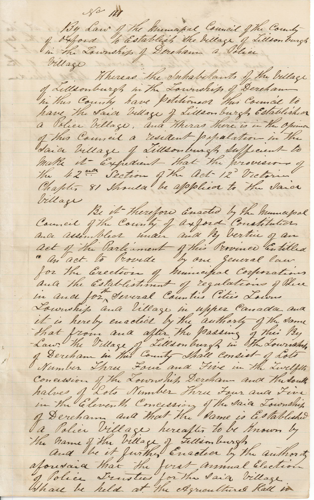 No 181
By Law of the Municipal Council of the County
of Oxford to Establish the Village of Tillsonburgh
in the Township of Dereham a Police
Village
Whereas the Inhabitants of the Village
of Tillsonburgh in the Township of Dereham
in this County have Petitioned this Council to
have the Said Village of Tillsonburgh Establish
a Police Village, and Whereas there is in the opinion
of this Council a resident population in the
Said Village of Tillsonburgh Sufficient to
Make it Expedient that the provisions of
the 42nd Section of the Act 12th Victoria
Chapter 81 Should be applied to the Said
Village
Be it therefore Enacted by the Municipal
Council of the County of Oxford Constituted
and assembled under and by Vertue of an
act of the Parliament of this Province Entitled
"An act to Provide by one general law
for the Erection of Municipal Corporations
and the Establishment of regulations of Police
in and for Several Counties Cities Towns
Townships and Village in upper Canada and
it is hereby enacted by the authority of the same
that from and after the passing of this By
Law the Village of Tillsonburgh in the Township
of Dereham in the County Shall consist of Lots
Number Three Four and Five in the Twelfth
concession of the Township Dereham and the South
halves of Lots Number Three Four and Five
in the Eleventh Concession of the Said Township
of Dereham and that the Same is Establish
a Police Village hereafter to be known by
the Name of the Village of Tillsonburgh
and be it further Enacted by the authority
aforesaid that the first annual Election
of Police Trustees for the Said Village
Shall be held at the Agricultural Hall in